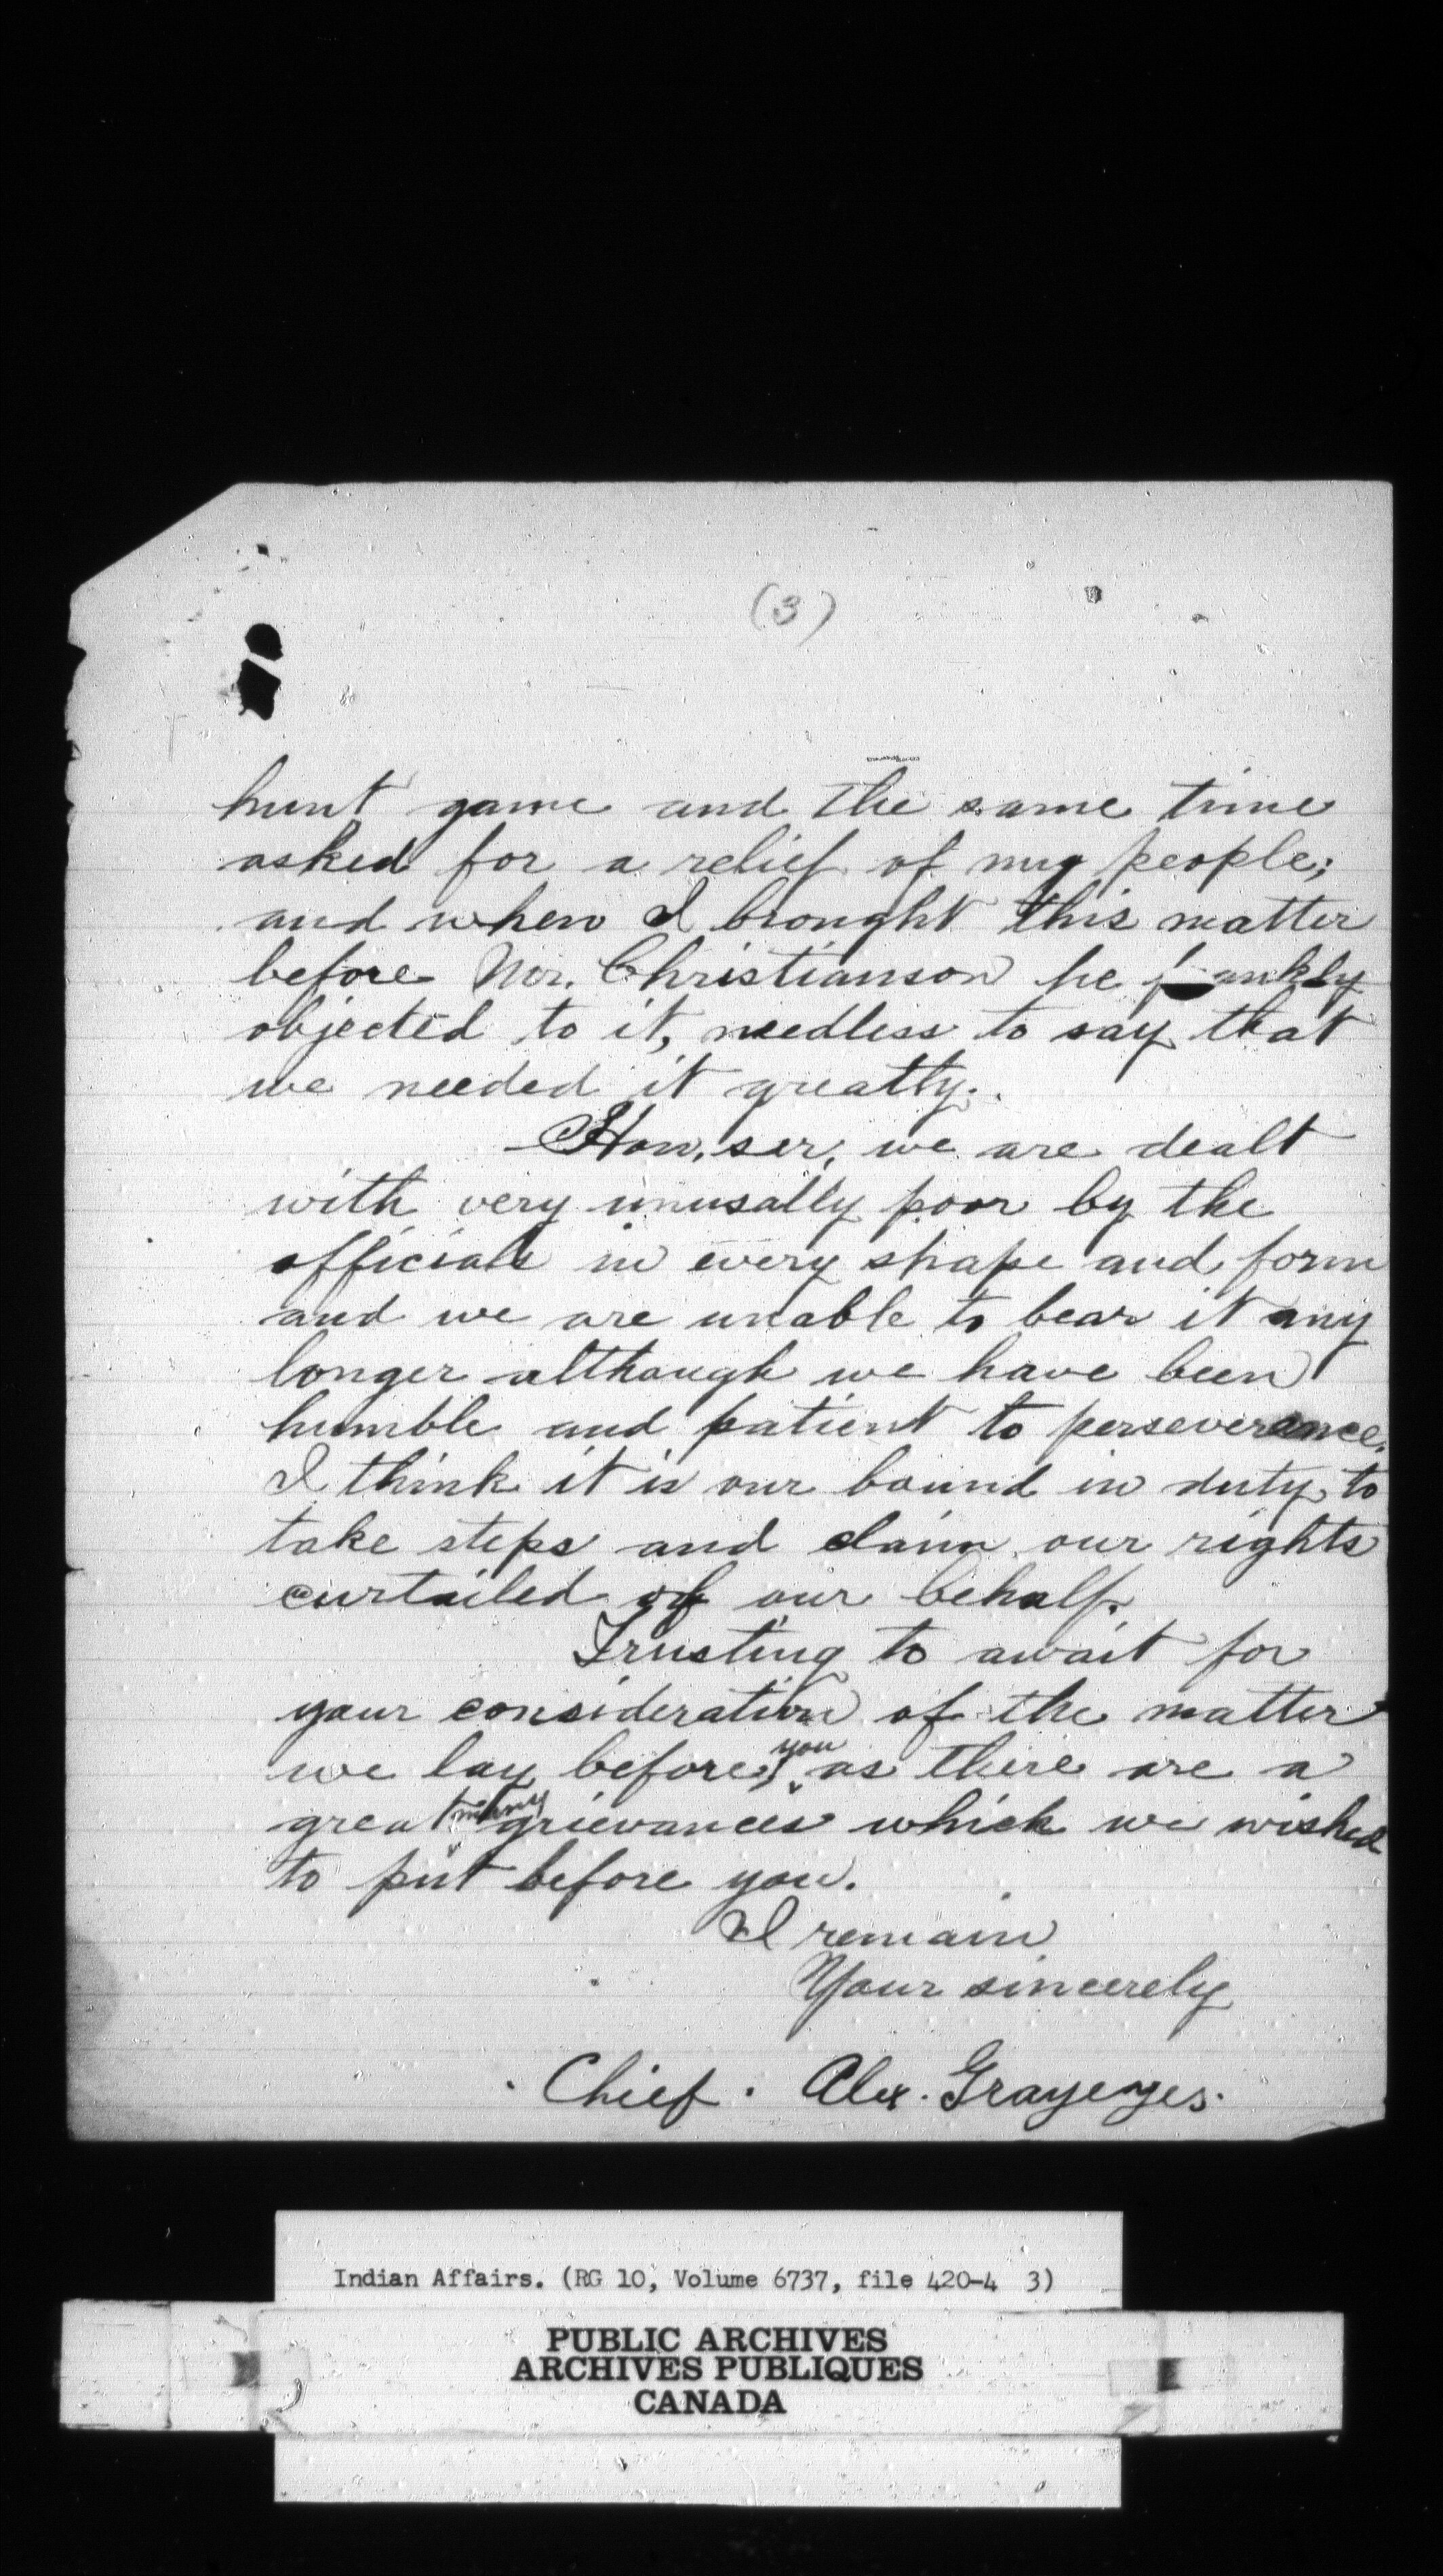 (3)
hunt game and the same time
asked for a relief of my people;
and when I brought this matter
before Mr. Christianson he frankly
objected to it, needless to say that
we needed it greatly.
Hon, ser, we are dealt
with very unusally poor by the
officials in every shape and form
and we are unable to bear it any
longer although we have been
humble and patient to perseverance.
I think it is our bound in duty to
take steps and claim our rights
curtailed of our behalf.
Trusting to await for
your consideration of the matter
we lay before you as there are a
great many grievances which we wished
to put before you.
I remain
Your sincerely
Chief. Alex. Grayeyes.
Indian Affairs. (RG 10, Volume 6737, file 420-4 3)
PUBLIC ARCHIVES
ARCHIVES PUBLIQUES
CANADA